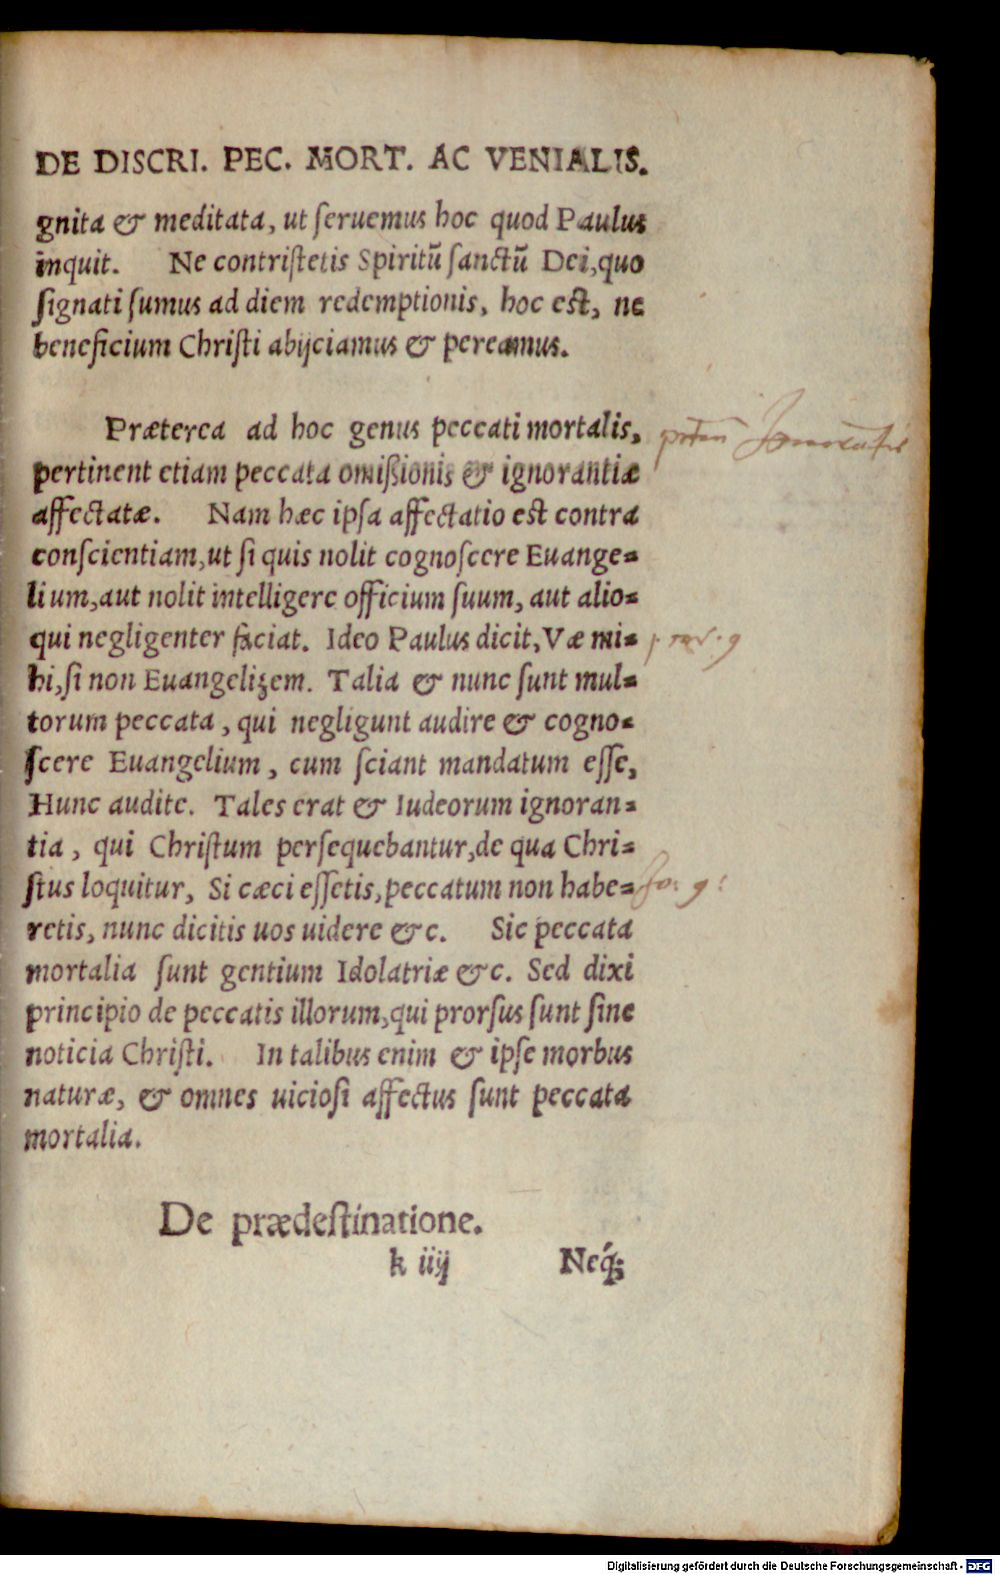 DE DISCRI. PEC. MORT. AC VENIALIS.
gnita & meditata, ut ſeruemus hoc quod Paulus
inquit. Ne contriſtetis Spiritū ſanctū Dei, quo
ſignati ſumus ad diem redemptionis, hoc est, ne
beneficium Chriſti abijciamus & pereamus.
Præterea ad hoc genus peccati mortalis,
pertinent etiam peccata omiſsionis & ignorantiæ
affectatæ. Nam hæc ipſa affectatio est contra
conſcientiam, ut ſi quis nolit cognoſcere Euange=
lium, aut nolit intelligere officium ſuum, aut alio=
qui negligenter faciat. Ideo Paulus dicit, Væ mi=
hi, ſi non Euangelizem. Talia & nunc ſunt mul=
torum peccata, qui negligunt audire & cogno=
ſcere Euangelium, cum ſciant mandatum eſſe,
Hunc audite. Tales erat & Iudeorum ignoran=
tia, qui Chriſtum perſequebantur, de qua Chri=
ſtus loquitur, Si cæci eſſetis, peccatum non habe=
retis, nunc dicitis uos uidere &c. Sic peccata
mortalia ſunt gentium Idolatriæ &c. Sed dixi
principio de peccatis illorum, qui prorſus ſunt ſine
noticia Chriſti. In talibus enim & ipſe morbus
naturæ, & omnes uicioſi affectus ſunt peccata
mortalia.
De prædeſtinatione.
k iiij Neq́;
Digitalisierung gefördert durch die Deutsche Forschungsgemeinschaft - DFG